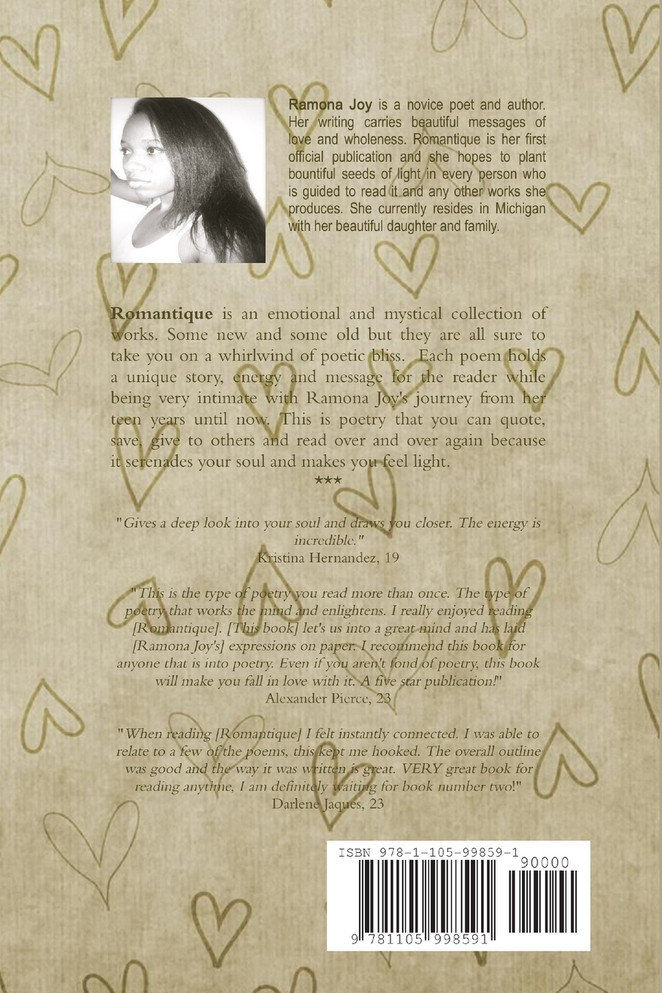 Ramona Joy is a novice poet and author.
Her writing carries beautiful messages of
love and wholeness. Romantique is her first
official publication and she hopes to plant
bountiful seeds of light in every person who
is guided to read it and any other works she
produces. She currently resides in Michigan
with her beautiful daughter and family.
Romantique is an emotional and mystical collection of
works. Some new and some old but they are all sure to
take you on a whirlwind of poetic bliss. Each poem holds
a unique story, energy and message for the reader while
being very intimate with Ramona Joy's journey from her
teen years until now. This is poetry that you can quote,
save, give to others and read over and over again because
it serenades your soul and makes you feel light.
***
"Gives a deep look into your soul and draws you closer. The energy is
incredible."
Kristina Hernandez, 19
"This is the type of poetry you read more than once. The type of
poetry that works the mind and enlightens. I really enjoyed reading
[Romantique]. [This book] let's us into a great mind and has laid
[Ramona Joy's] expressions on paper. I recommend this book for
anyone that is into poetry. Even if you aren't fond of poetry, this book
will make you fall in love with it. A five star publication!"
Alexander Pierce, 23
"When reading [Romantique] I felt instantly connected. I was able to
relate to a few of the poems, this kept me hooked. The overall outline
was good and the way it was written is great. VERY great book for
reading anytime, I am definitely waiting for book number two!"
Darlene Jaques, 23
ISBN 978-1-105-99859-1
90000
9 781105 998591